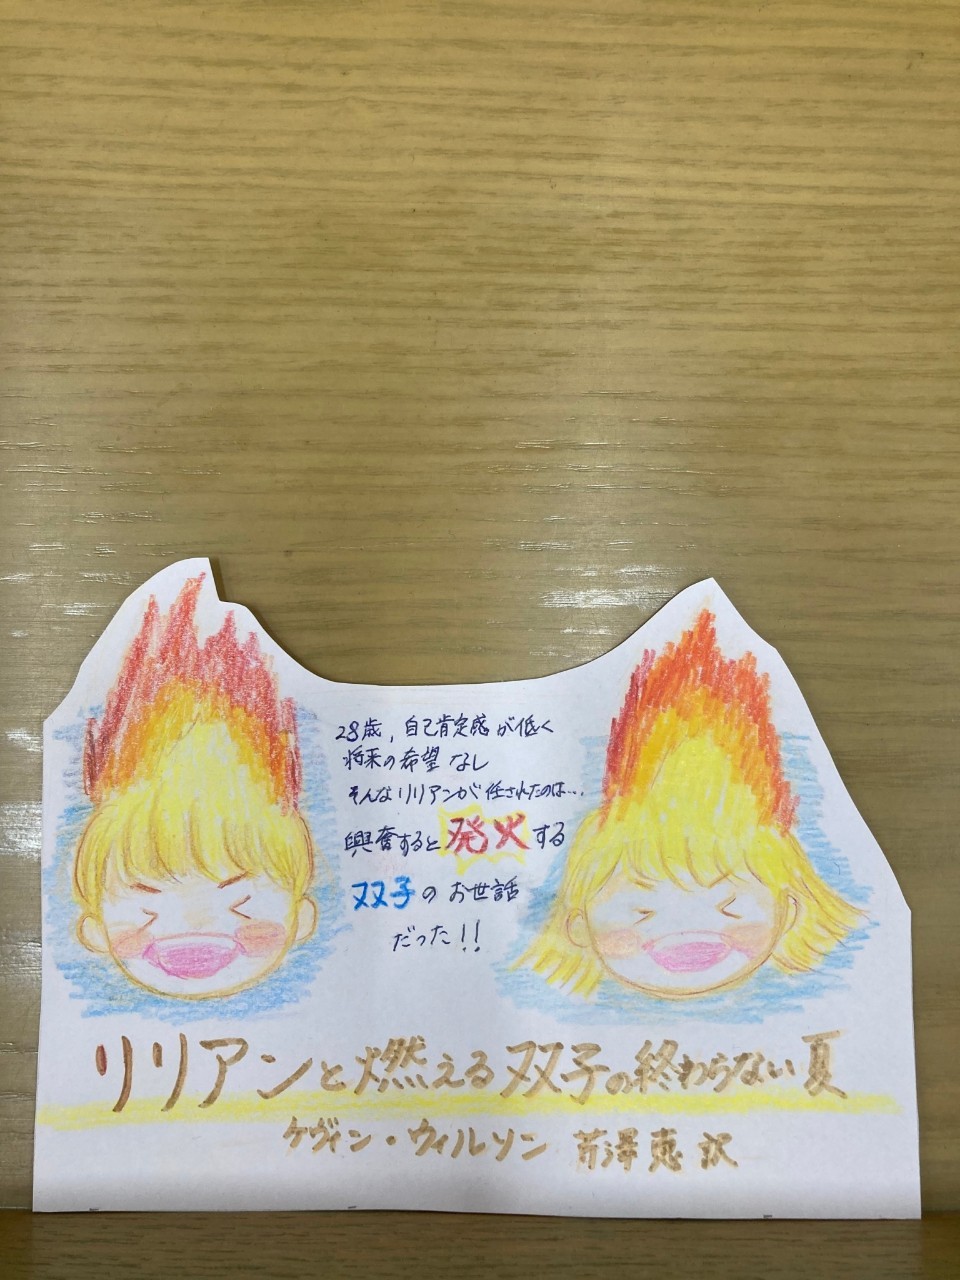 28歳、自己肯定感が低く
将来の希望なし
そんなリリアンが任されたのは…
興奮すると発火する
双子のお世話
だった!!
リリアンと燃える双子の終わらない夏
ケヴィン・ウィルソン 芹澤恵 訳